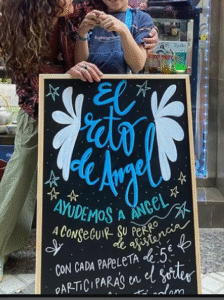 El
reto
de Angel
AYUDEMOS A ANGEL
A CONSEGUIR SU PERRO
de asistencia
CON CADA PAPELETA de 5€
PARTICIPARÁS EN EL SORTEO